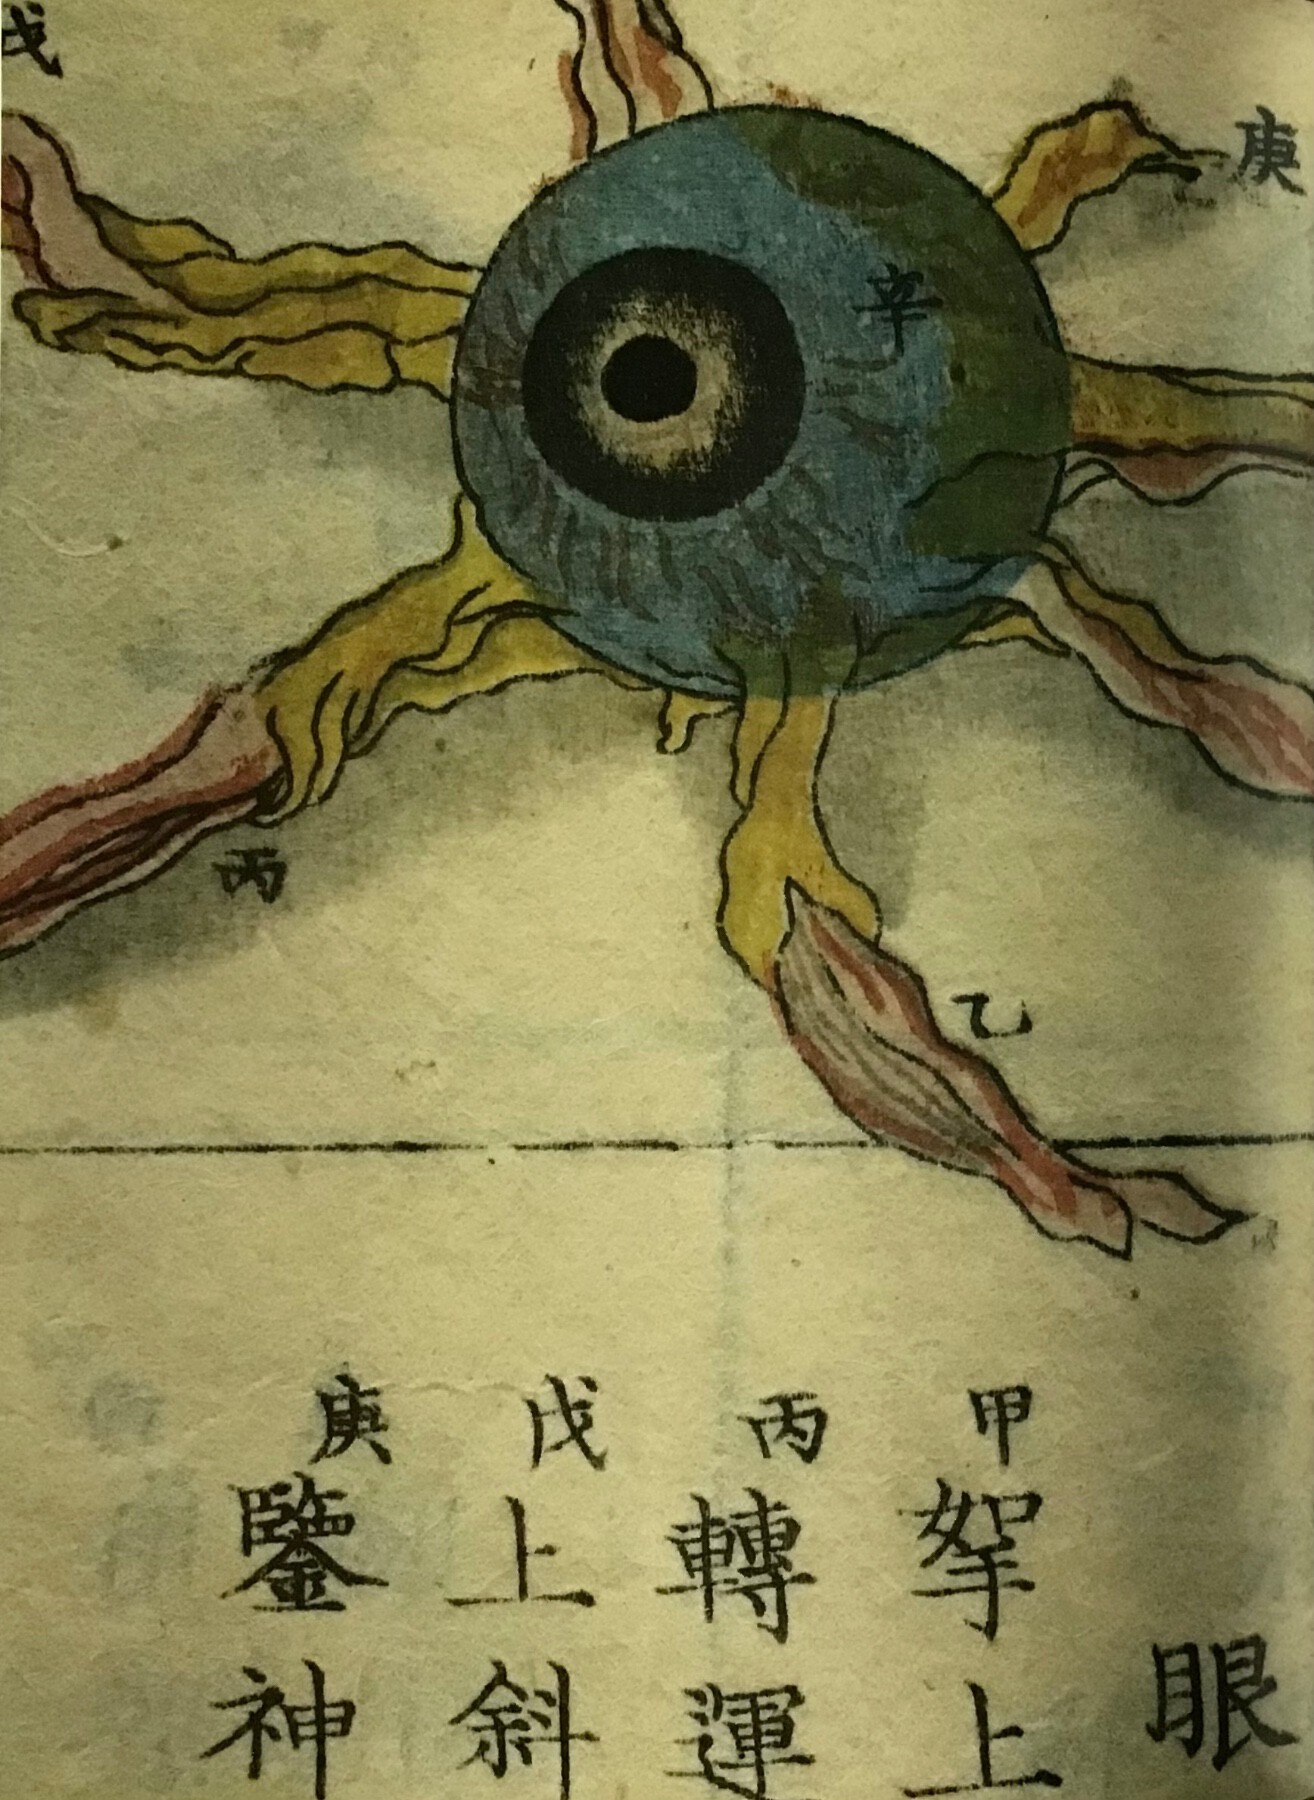 戊
庚
辛
丙
乙
眼
甲
挐上
丙
轉運
戊
上斜
庚
鑒神